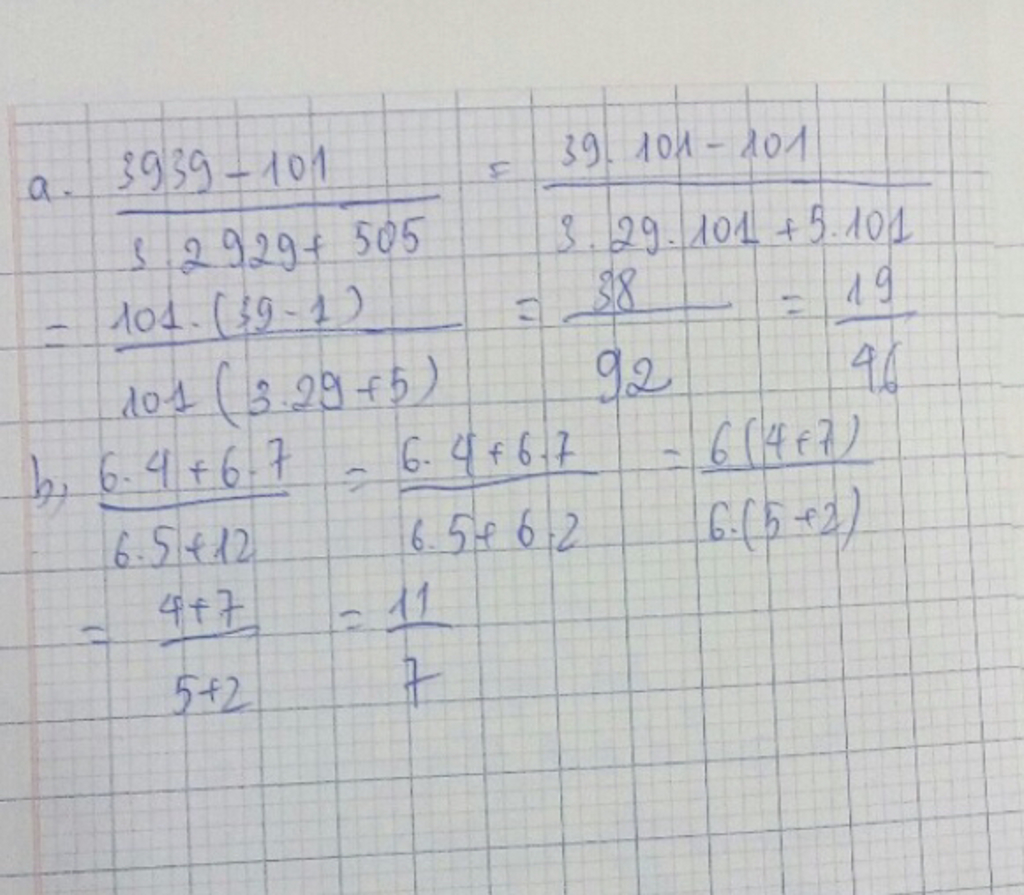 a. 3939 - 101 / 3 2929 + 505 = 39. 101 - 101 / 3. 29. 101 + 5. 101
= 101. (39 - 1) / 101 (3. 29 + 5) = 38 / 92 = 19 / 46
b, 6. 4 + 6. 7 / 6. 5 + 12 = 6. 4 + 6. 7 / 6. 5 + 6 2 = 6 (4 + 7) / 6. (5 + 2)
= 4 + 7 / 5 + 2 = 11 / 7